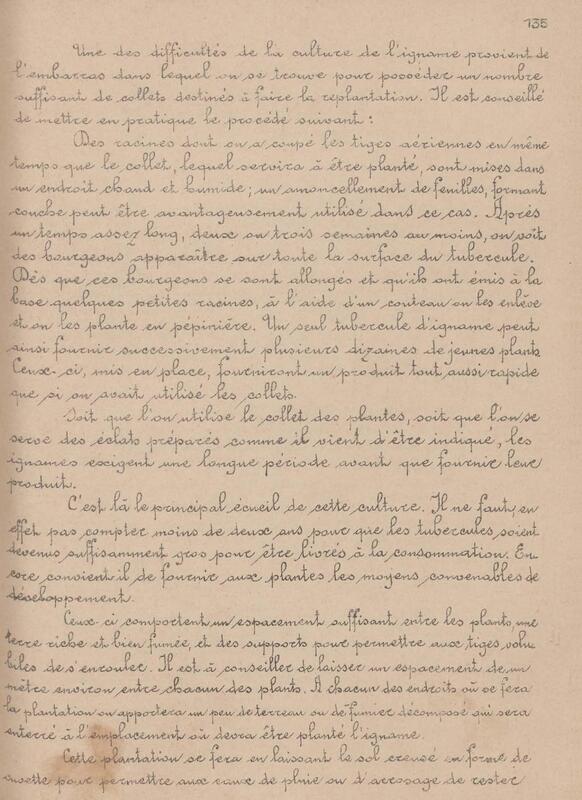 135
Une des difficultés de la culture de l'igname provient de
l'embarras dans lequel on se trouve pour posséder un nombre
suffisant de collets destinés à faire la replantation. Il est conseillé
de mettre en pratique le procédé suivant :
Des racines dont on a coupé les tiges aériennes en même
temps que le collet, lequel servira à être planté, sont mises dans
un endroit chaud et humide; un amoncellement de feuilles, formant
couche peut être avantageusement utilisé dans ce cas. Après
un temps assez long, deux ou trois semaines au moins, on voit
des bourgeons apparaître sur toute la surface du tubercule.
Dès que ces bourgeons se sont allongés et qu'ils ont émis à la
base quelques petites racines, à l'aide d'un couteau on les enlève
et on les plante en pépinière. Un seul tubercule d'igname peut
ainsi fournir successivement plusieurs dizaines de jeunes plants
Ceux-ci, mis en place, fourniront un produit tout aussi rapide
que si on avait utilisé les collets.
Soit que l'on utilise le collet des plantes, soit que l'on se
serve des éclats préparés comme il vient d'être indiqué, les
ignames exigent une longue période avant que fournir leur
produit.
C'est là le principal écueil de cette culture. Il ne faut, en
effet pas compter moins de deux ans pour que les tubercules soient
devenus suffisamment gros pour être livrés à la consommation. En-
core convient il de fournir aux plantes les moyens convenables de
développement.
Ceux-ci comportent un espacement suffisant entre les plants, une
terre riche et bien fumée, et des supports pour permettre aux tiges volu
biles de s'enrouler. Il est à conseiller de laisser un espacement de un
mètre environ entre chacun des plants. A chacun des endroits où se fera
la plantation on apportera un peu de terreau ou de fumier décomposé qui sera
enterré à l'emplacement où devra être planté l'igname.
Cette plantation se fera en laissant le sol creusé en forme de
cuvette pour permettre aux eaux de pluie ou d'arrosage de rester